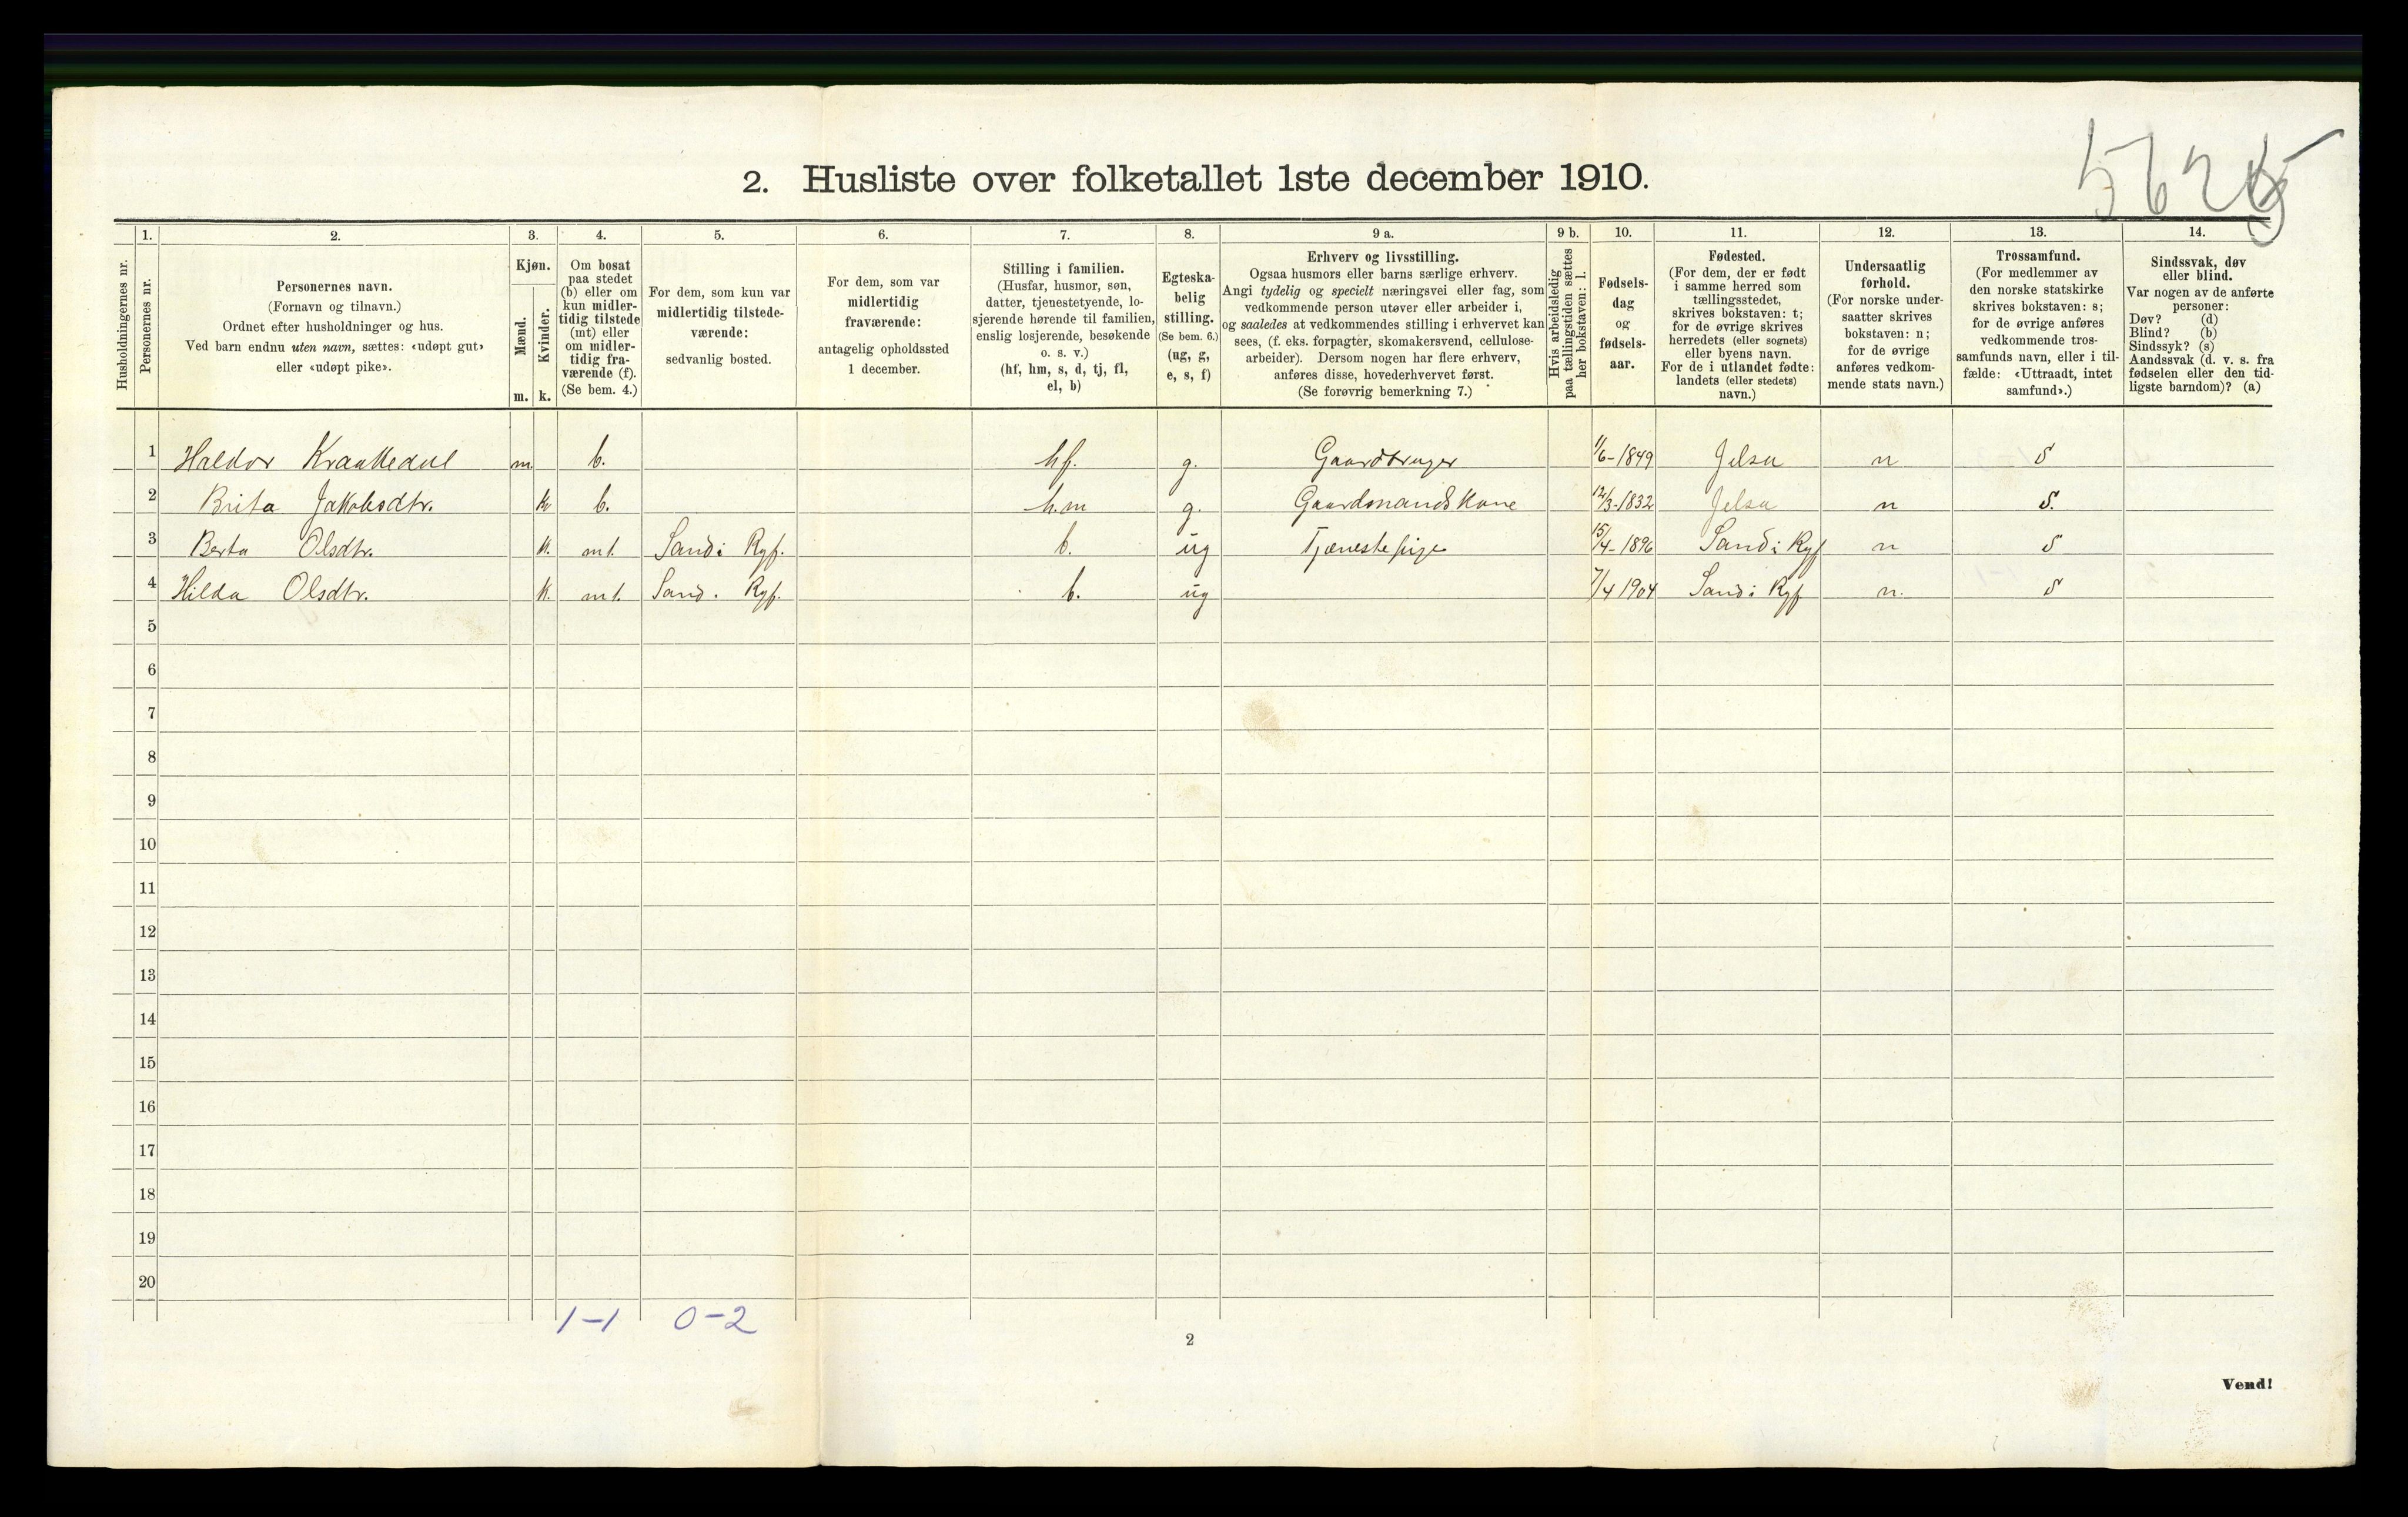 2. Husliste over folketallet 1ste december 1910.
1. 2. 3. 4. 5. 6. 7. 8. 9 a. 9 b. 10. 11. 12. 13. 14.
Husholdningernes nr.
Personernes nr.
Personernes navn.
(Fornavn og tilnavn.)
Ordnet efter husholdninger og hus.
Ved barn endnu uten navn, sættes: «udøpt gut»
eller «udøpt pike».
Kjøn.
Mænd.
Kvinder.
m. k.
Om bosat
paa stedet
(b) eller om
kun midler-
tidig tilstede
(mt) eller
om midler-
tidig fra-
værende (f).
(Se bem. 4.)
For dem, som kun var
midlertidig tilstede-
værende:
sedvanlig bosted.
For dem, som var
midlertidig
fraværende:
antagelig opholdssted
1 december.
Stilling i familien.
(Husfar, husmor, søn,
datter, tjenestetyende, lo-
sjerende hørende til familien,
enslig losjerende, besøkende
o. s. v.)
(hf, hm, s, d, tj, fl,
el, b)
Egteska-
belig
stilling.
(Se bem. 6.)
(ug, g,
e, s, f)
Erhverv og livsstilling.
Ogsaa husmors eller barns særlige erhverv.
Angi tydelig og specielt næringsvei eller fag, som
vedkommende person utøver eller arbeider i,
og saaledes at vedkommendes stilling i erhvervet kan
sees, (f. eks. forpagter, skomakersvend, cellulose-
arbeider). Dersom nogen har flere erhverv,
anføres disse, hovederhvervet først.
(Se forøvrig bemerkning 7.)
Hvis arbeidsledig
paa tællingstiden sættes
her bokstaven: l.
Fødsels-
dag
og
fødsels-
aar.
Fødested.
(For dem, der er født
i samme herred som
tællingsstedet,
skrives bokstaven: t;
for de øvrige skrives
herredets (eller sognets)
eller byens navn.
For de i utlandet fødte:
landets (eller stedets)
navn.)
Undersaatlig
forhold.
(For norske under-
saatter skrives
bokstaven: n;
for de øvrige
anføres vedkom-
mende stats navn.)
Trossamfund.
(For medlemmer av
den norske statskirke
skrives bokstaven: s;
for de øvrige anføres
vedkommende tros-
samfunds navn, eller i til-
fælde: «Uttraadt, intet
samfund».)
Sindssvak, døv
eller blind.
Var nogen av de anførte
personer:
Døv? (d)
Blind? (b)
Sindssyk? (s)
Aandssvak (d. v. s. fra
fødselen eller den tid-
ligste barndom)? (a)
1 Haldor Kraakedal m. b. hf. g. Gaardbruger 1/6-1849 Jelsa n s
2 Brita Jakobsdtr. k b. h.m g. Gaardmandskone 12/3-1832 Jelsa n s.
3 Berta Olsdtr. k. mt. Sand i Ryf. b. ug Tjænestepige 15/4-1896 Sand i Ryf n s
4 Hilda Olsdtr. k. mt. Sand. Ryf. b. ug 7/4 1904 Sand i Ryf n. s
5
6
7
8
9
10
11
12
13
14
15
16
17
18
19
20
1-1 0-2
2
Vend!